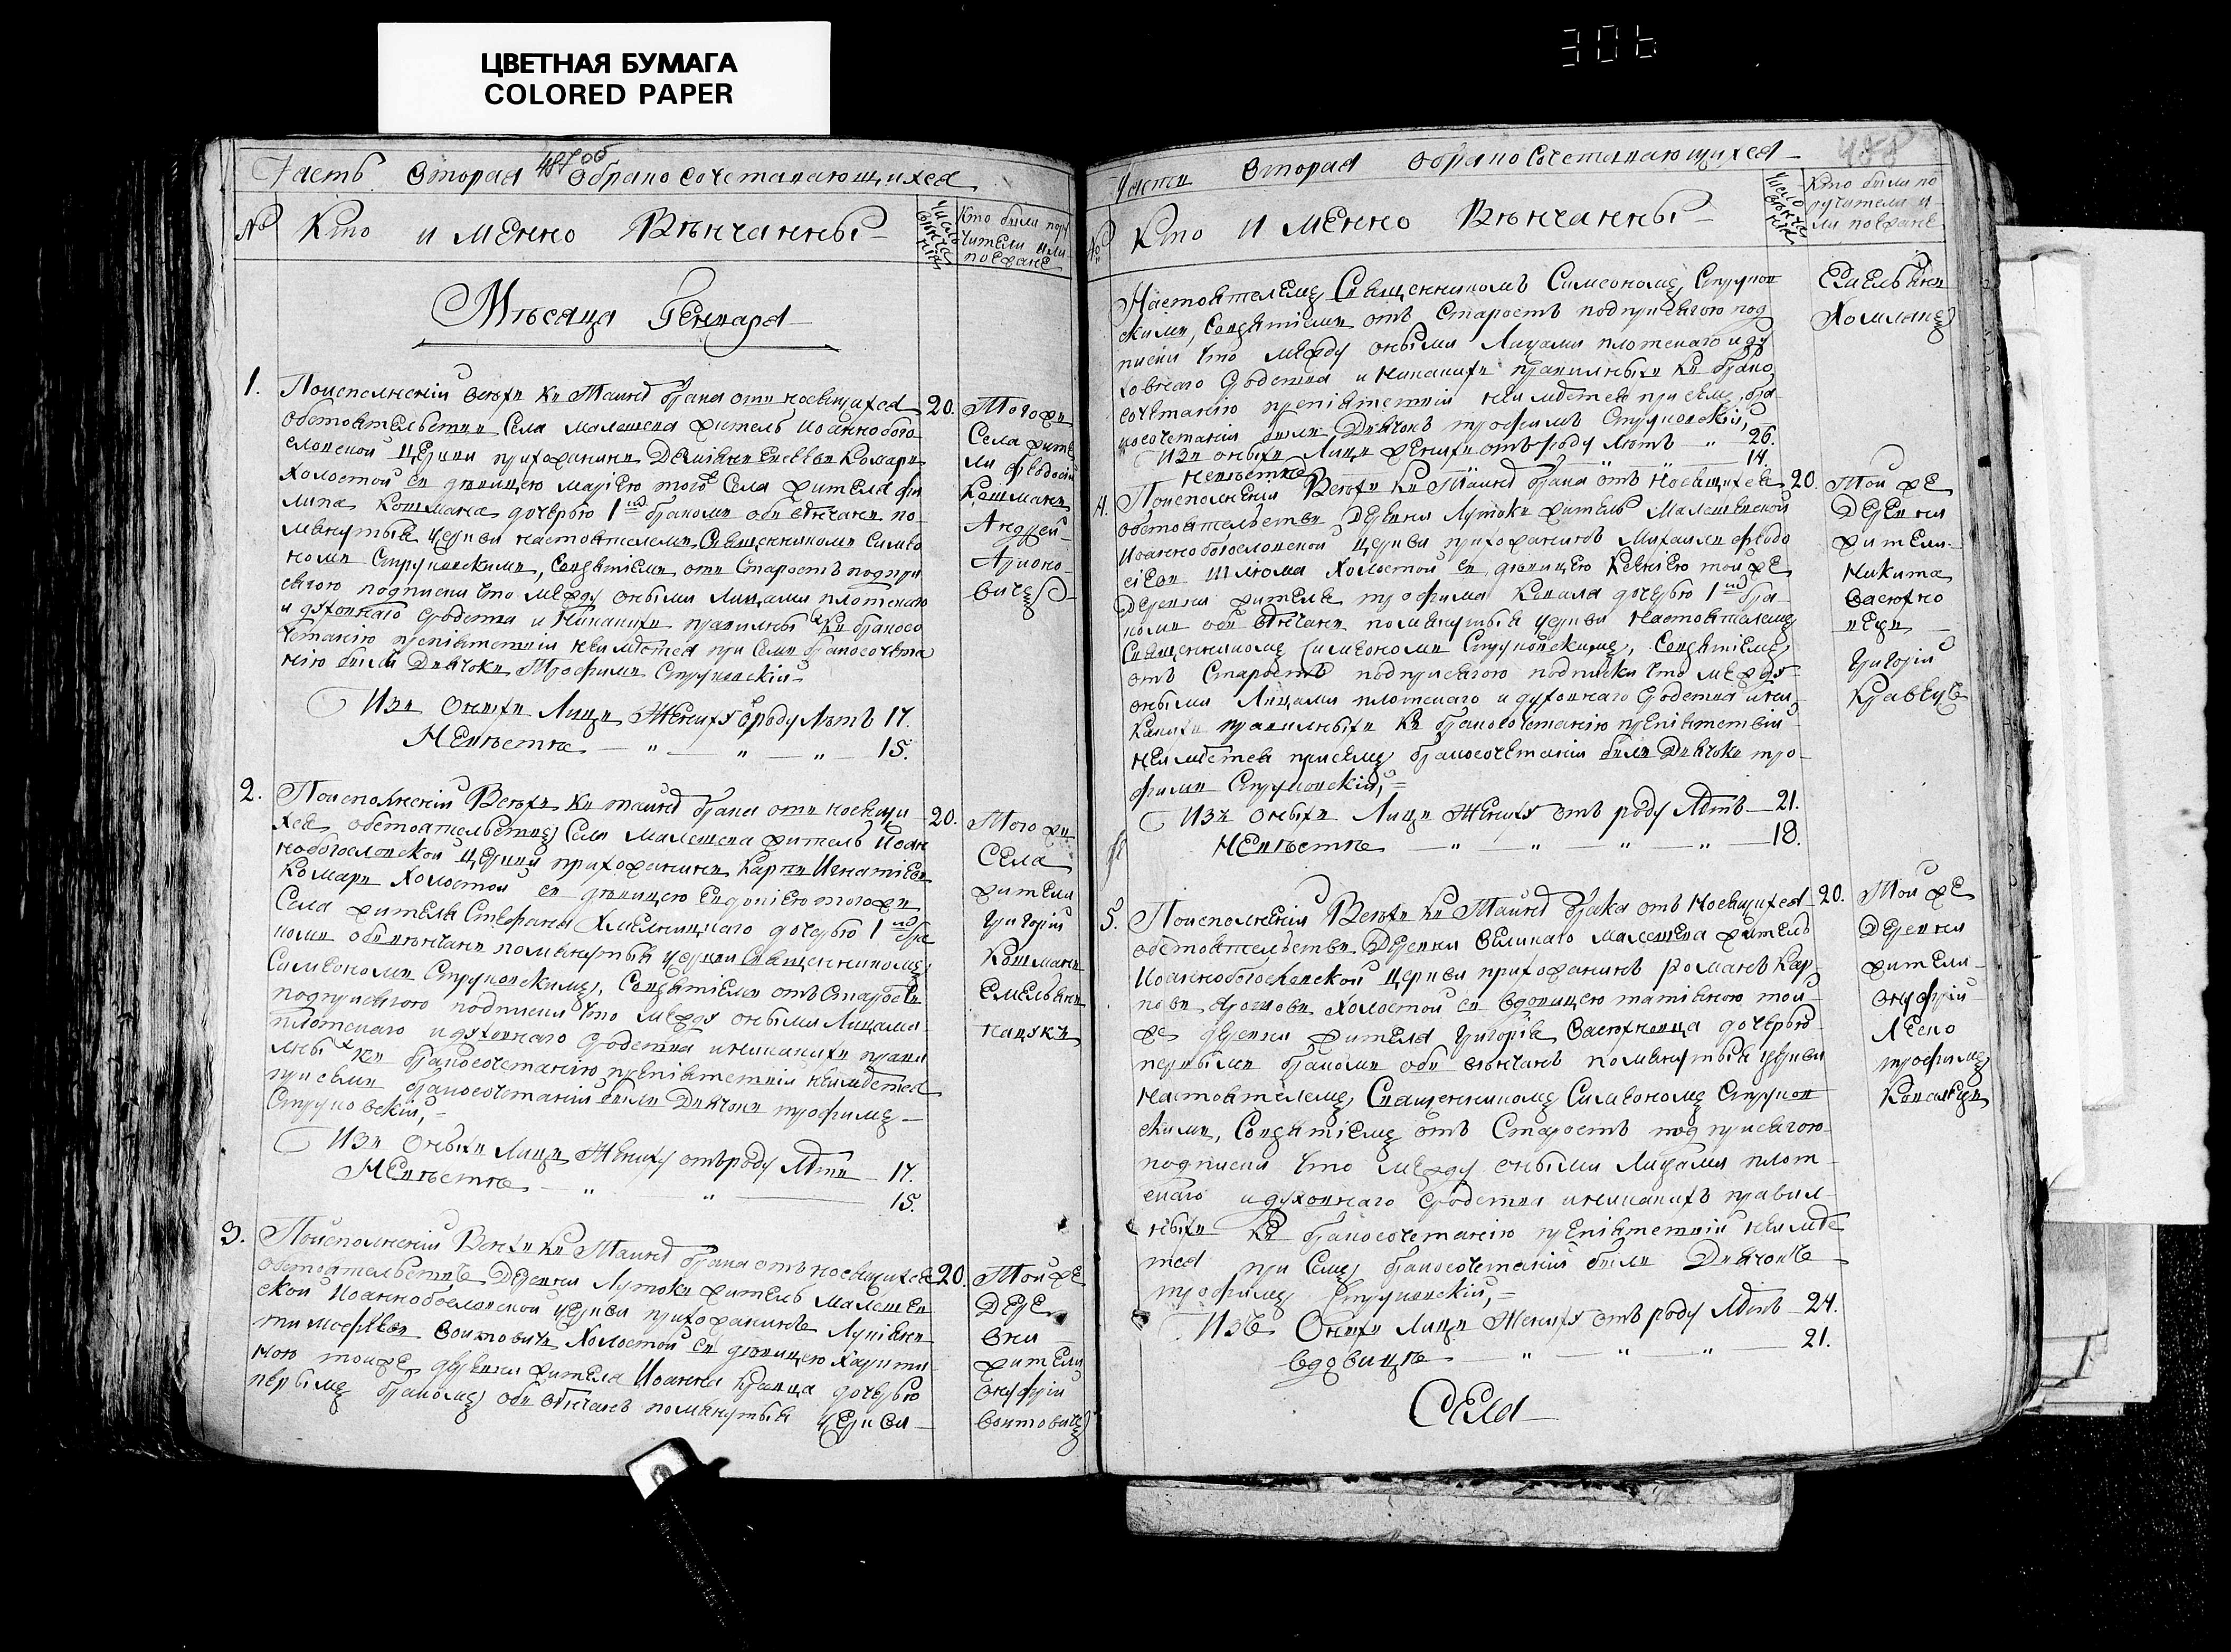 ЦВЕТНАЯ БУМАГА
COLORED PAPER
306
487об
Часть Вторая о бракосочетавающихся
№ Кто именно Вѣнчанны
Число вѣнчанія
Кто были пору
чители или
поезжане
Мѣсяца Генваря
1. Поисполненіи всѣхъ къ Таинѣ брака относящихся 20.
обстоятельствъ Села Малешева житель Иоаннобого
словской церкви прихожанинъ Комаръ
Холостой съ дѣвицею Маріею того Села жителя Фи
липа Кошмана дочерью 1мъ бракомъ обвѣнчанъ по
мянутыя церкви настоятелемъ Священникомъ Симео
номъ Струковскимъ, Сонзятіемъ отъ Старостъ подпри
сягою подписки что между оными Лицами плотскаго
и духовнаго сродства и никакихъ правилныхъ къ бракосо
четанію препятствій неимѣется при семъ бракосочета
нію былъ Дьячокъ Трофимъ Струковскій
Изъ оныхъ Лицъ Жениху ѿроду Лѣтъ 17.
Невѣстѣ — „ — „ — „ — 15.
Тогожъ
Села жите
ли Феодосій
Кошманъ
Андрей
2. Поисполненіи Всѣхъ къ таинѣ брака относящи 20.
хся обстоятельствъ Села Малешева житель Иоан
нобогословской церкви прихожанинъ Карпъ Игнатіевъ
Комаръ Холостой съ дѣвицею Евдокіею тогожъ
Села жителя Стефана Хмелницкаго дочерью 1мъ бра
комъ обвѣнчанъ помянутыя церкви Священникомъ
Симеономъ Струковскимъ, Сонзятіемъ отъ Старостъ
подприсягою подписки что между оными Лицами
плотскаго и духовнаго сродства иникакихъ прави
лныхъ къ бракосочетанію препятствій неимѣется
присемъ бракосочетаніи былъ Дьячокъ Трофимъ
Струковскій,
Изъ оныхъ Лицъ Жениху отъроду Лѣтъ 17.
Невѣстѣ — „ — „ — 15.
Тогожъ
Села
жители
Григорій
Кошманъ
Емельянъ
3. Поисполненіи Всѣхъ къ Таинѣ брака отъносящихся 20.
обстоятельствъ Деревни Лутокъ житель Малешев
ской Иоаннобогословской церкви прихожанинъ Лукіянъ
Тимофѣевъ Войтовичъ Холостой съ дѣвицею Харити
ною тоиже деревни жителя Иоанна Кравца дочерью
первымъ бракомъ обвѣнчанъ помянутыя церкви
Тойже
Дере
вни
жители
Онуфрій
Войтовичъ
488
Часть Вторая о бракосочетавающихся
№ Кто именно Вѣнчанны
Число вѣнчанія
Кто были по
ручители и
ли поезжане
Настоятелемъ Священникомъ Симеономъ Струков
скимъ, Сонзятіемъ отъ Старостъ подприсягою под
писки что между оными Лицами плотскаго и ду
ховнаго сродства и никакихъ правилныхъ къ брако
сочетанію препятствій неимѣется при семъ бра
косочетаніи былъ Дьячокъ Трофимъ Струковскій,
Изъ оныхъ Лицъ Жениху отъ роду Лѣтъ „ 26.
Невѣстѣ — „ — „ — 14.
Емельянъ
4. Поисполненіи Всѣхъ къ Таинѣ брака отъ носящихся 20.
обстоятельствъ Деревни Лутокъ житель Малешевской
Иоаннобогословской церкви прихожанинъ Михаилъ Феодо
сіевъ Шляхома Холостой съ дѣвицею Ксеніею тойже
Деревни жителя Трофима Ковала дочерью 1мъ бра
комъ обвѣнчанъ помянутыя церкви Настоятелемъ
Священникомъ Симеономъ Струковскимъ, Сонзятіемъ
отъ Старостъ подприсягою подписки что между
оными Лицами плотскаго и духовнаго сродства ини
какихъ правилныхъ къ бракосочетанію препятствій
неимѣется присемъ бракосочетаніи былъ Дьячокъ Тро
фимъ Струковскій,
Изъ оныхъ Лицъ Жениху отъ роду Лѣтъ — 21.
Невѣстѣ — „ — „ — „ — „ — 18.
Той же
Деревни
жители
Никита
Григорій
Кравецъ
5. Поисполненіи Всѣхъ къ Таинѣ брака отъ носящихся 20.
обстоятельствъ Деревни Великаго Малешева житель
Иоаннобогословской Церкви прихожанинъ Романъ Кар
повъ Холостой съ вдовицею Татіяною той
же деревни жителя Григорія дочерью
первымъ бракомъ обвѣнчанъ помянутыя церкви
Настоятелемъ Священникомъ Симеономъ Струков
скимъ, Сонзятіемъ отъ Старостъ подприсягою
подписки что между оными Лицами плот
скаго и духовнаго сродства иникакихъ правил
ныхъ къ бракосочетанію препятствій неимѣе
тся при семъ бракосочетаніи былъ Дьячокъ
Трофимъ Струковскій,
Изъ Оныхъ Лицъ Жениху отъ роду Лѣтъ — 24.
вдовицѣ — „ — „ — „ — 21.
Той же
Деревни
жители
Онуфрій
Трофимъ
Села